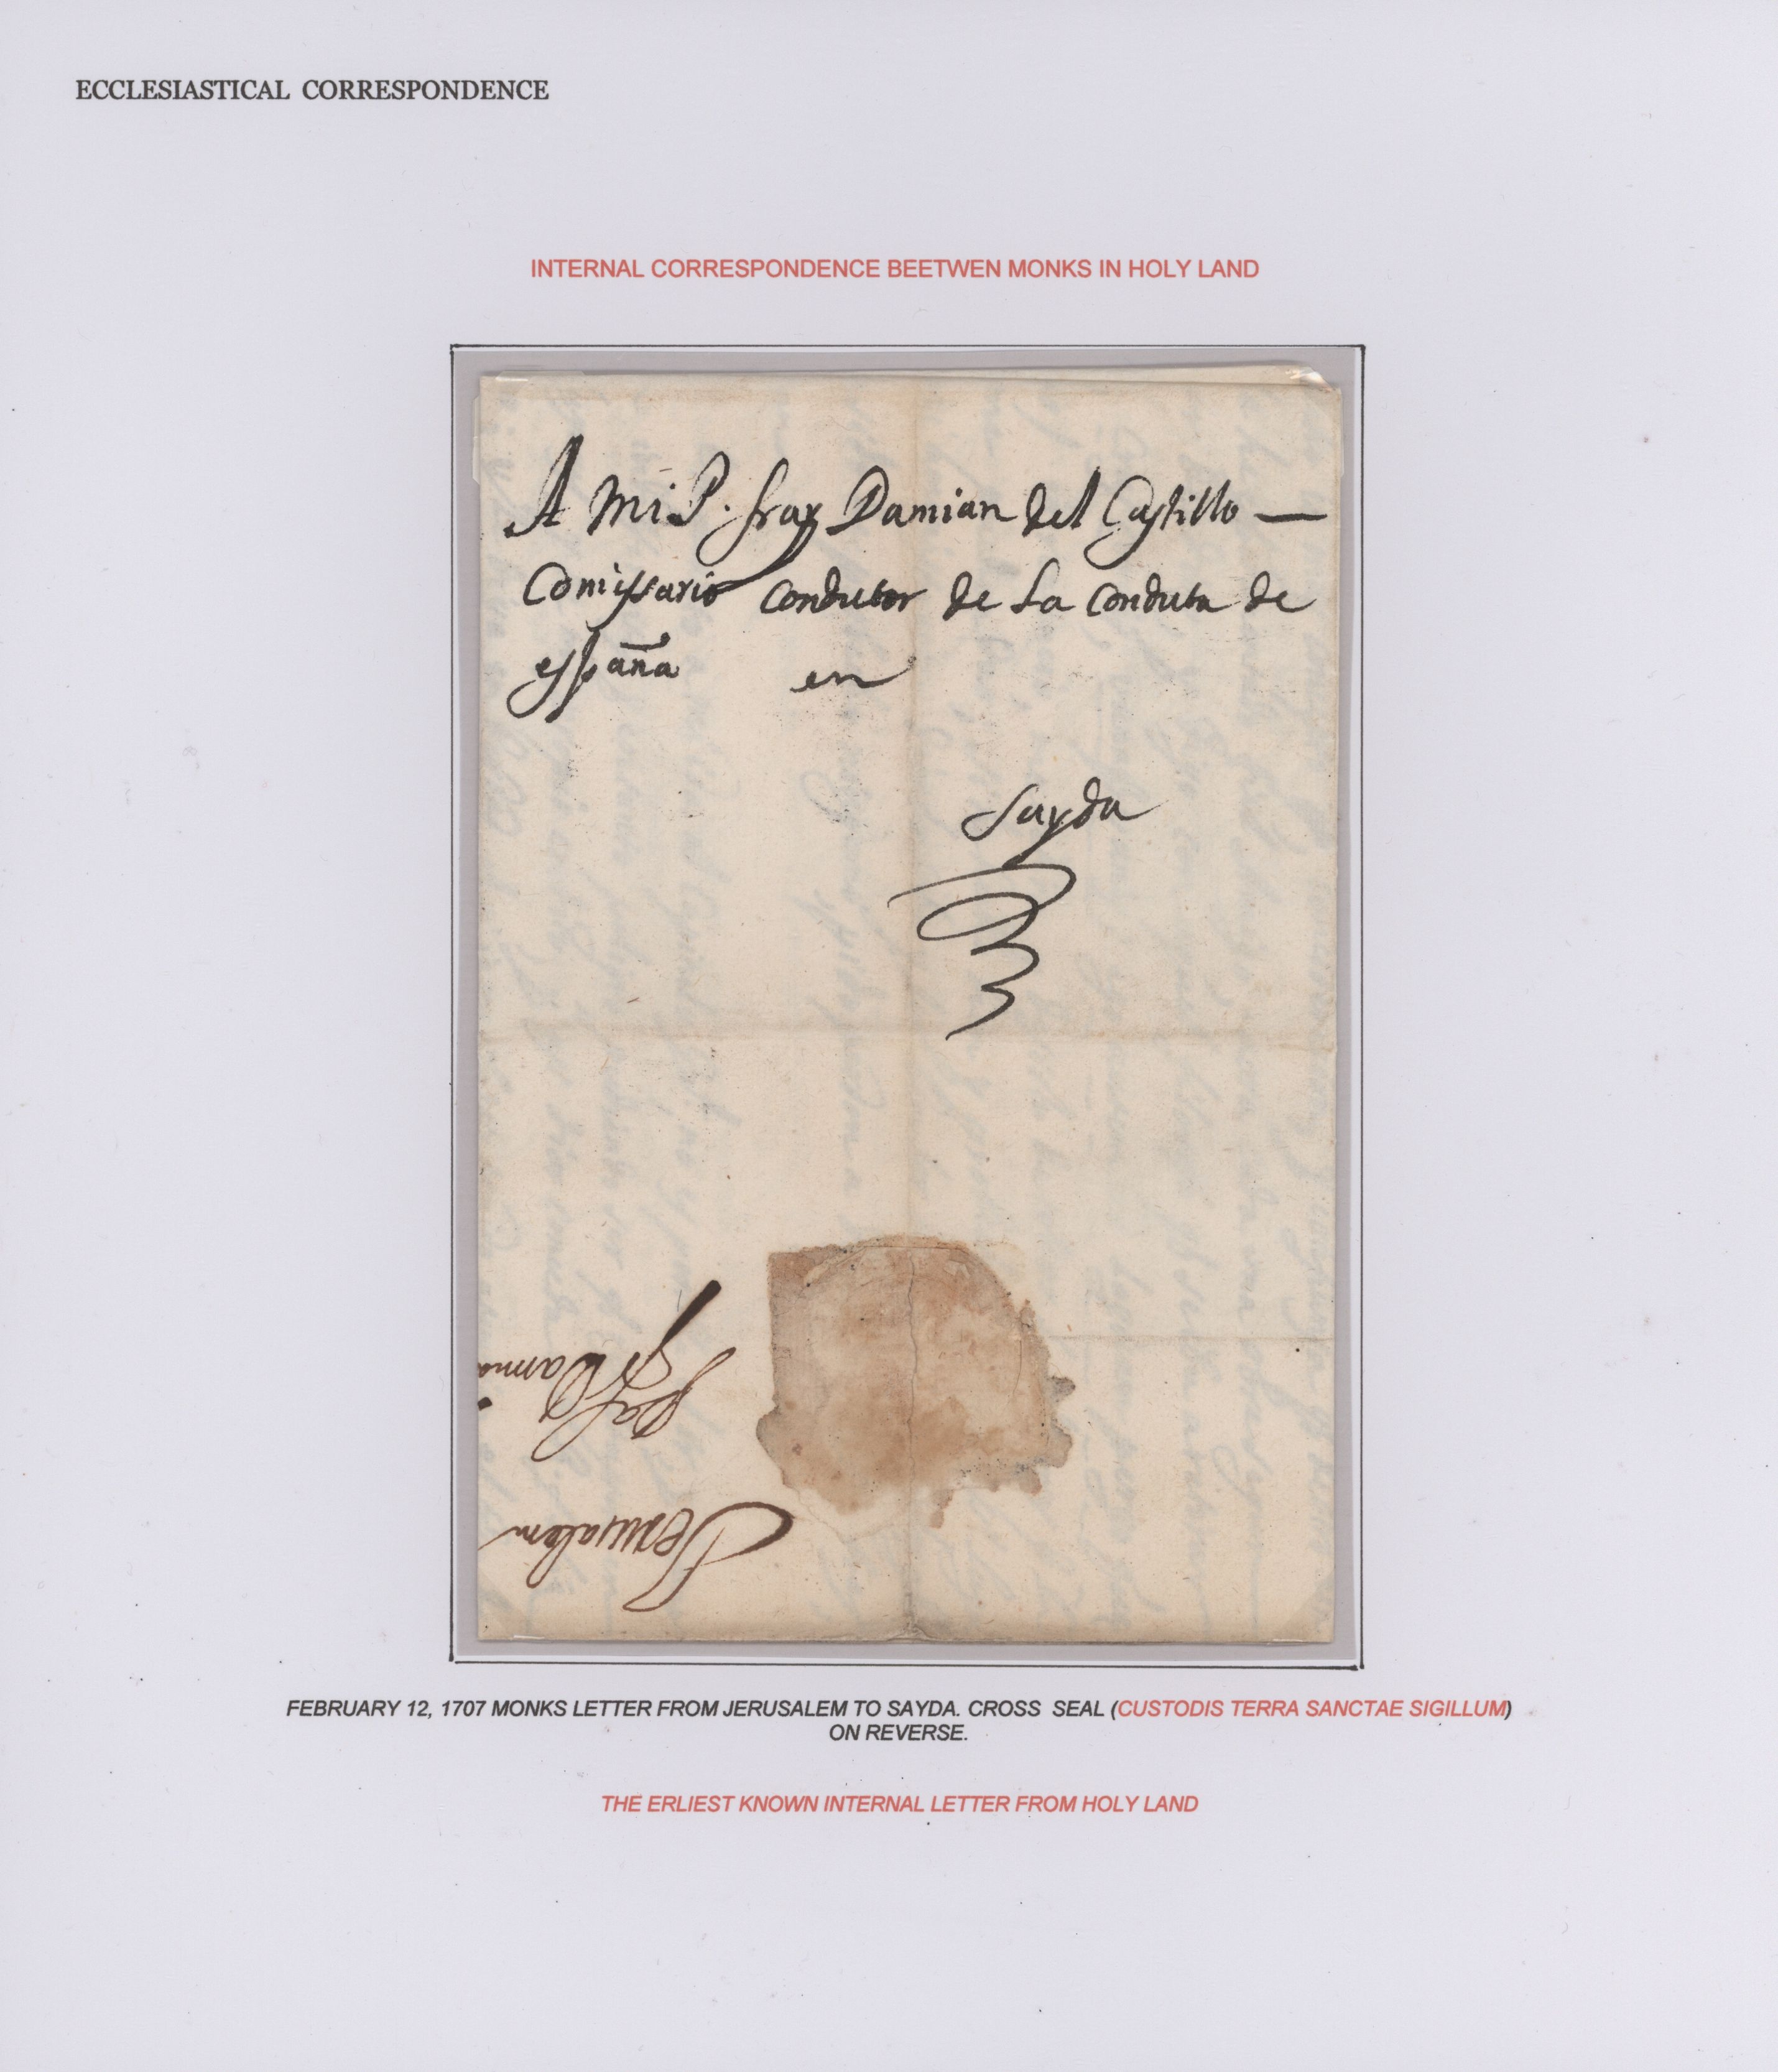 ECCLESIASTICAL CORRESPONDENCE
INTERNAL CORRESPONDENCE BEETWEN MONKS IN HOLY LAND
A Mi P. fray Damian del Castillo
Comissario Condutor de La Conduta de
españa en
Sayda
Jerusalem
FEBRUARY 12, 1707 MONKS LETTER FROM JERUSALEM TO SAYDA. CROSS SEAL (CUSTODIS TERRA SANCTAE SIGILLUM)
ON REVERSE.
THE ERLIEST KNOWN INTERNAL LETTER FROM HOLY LAND